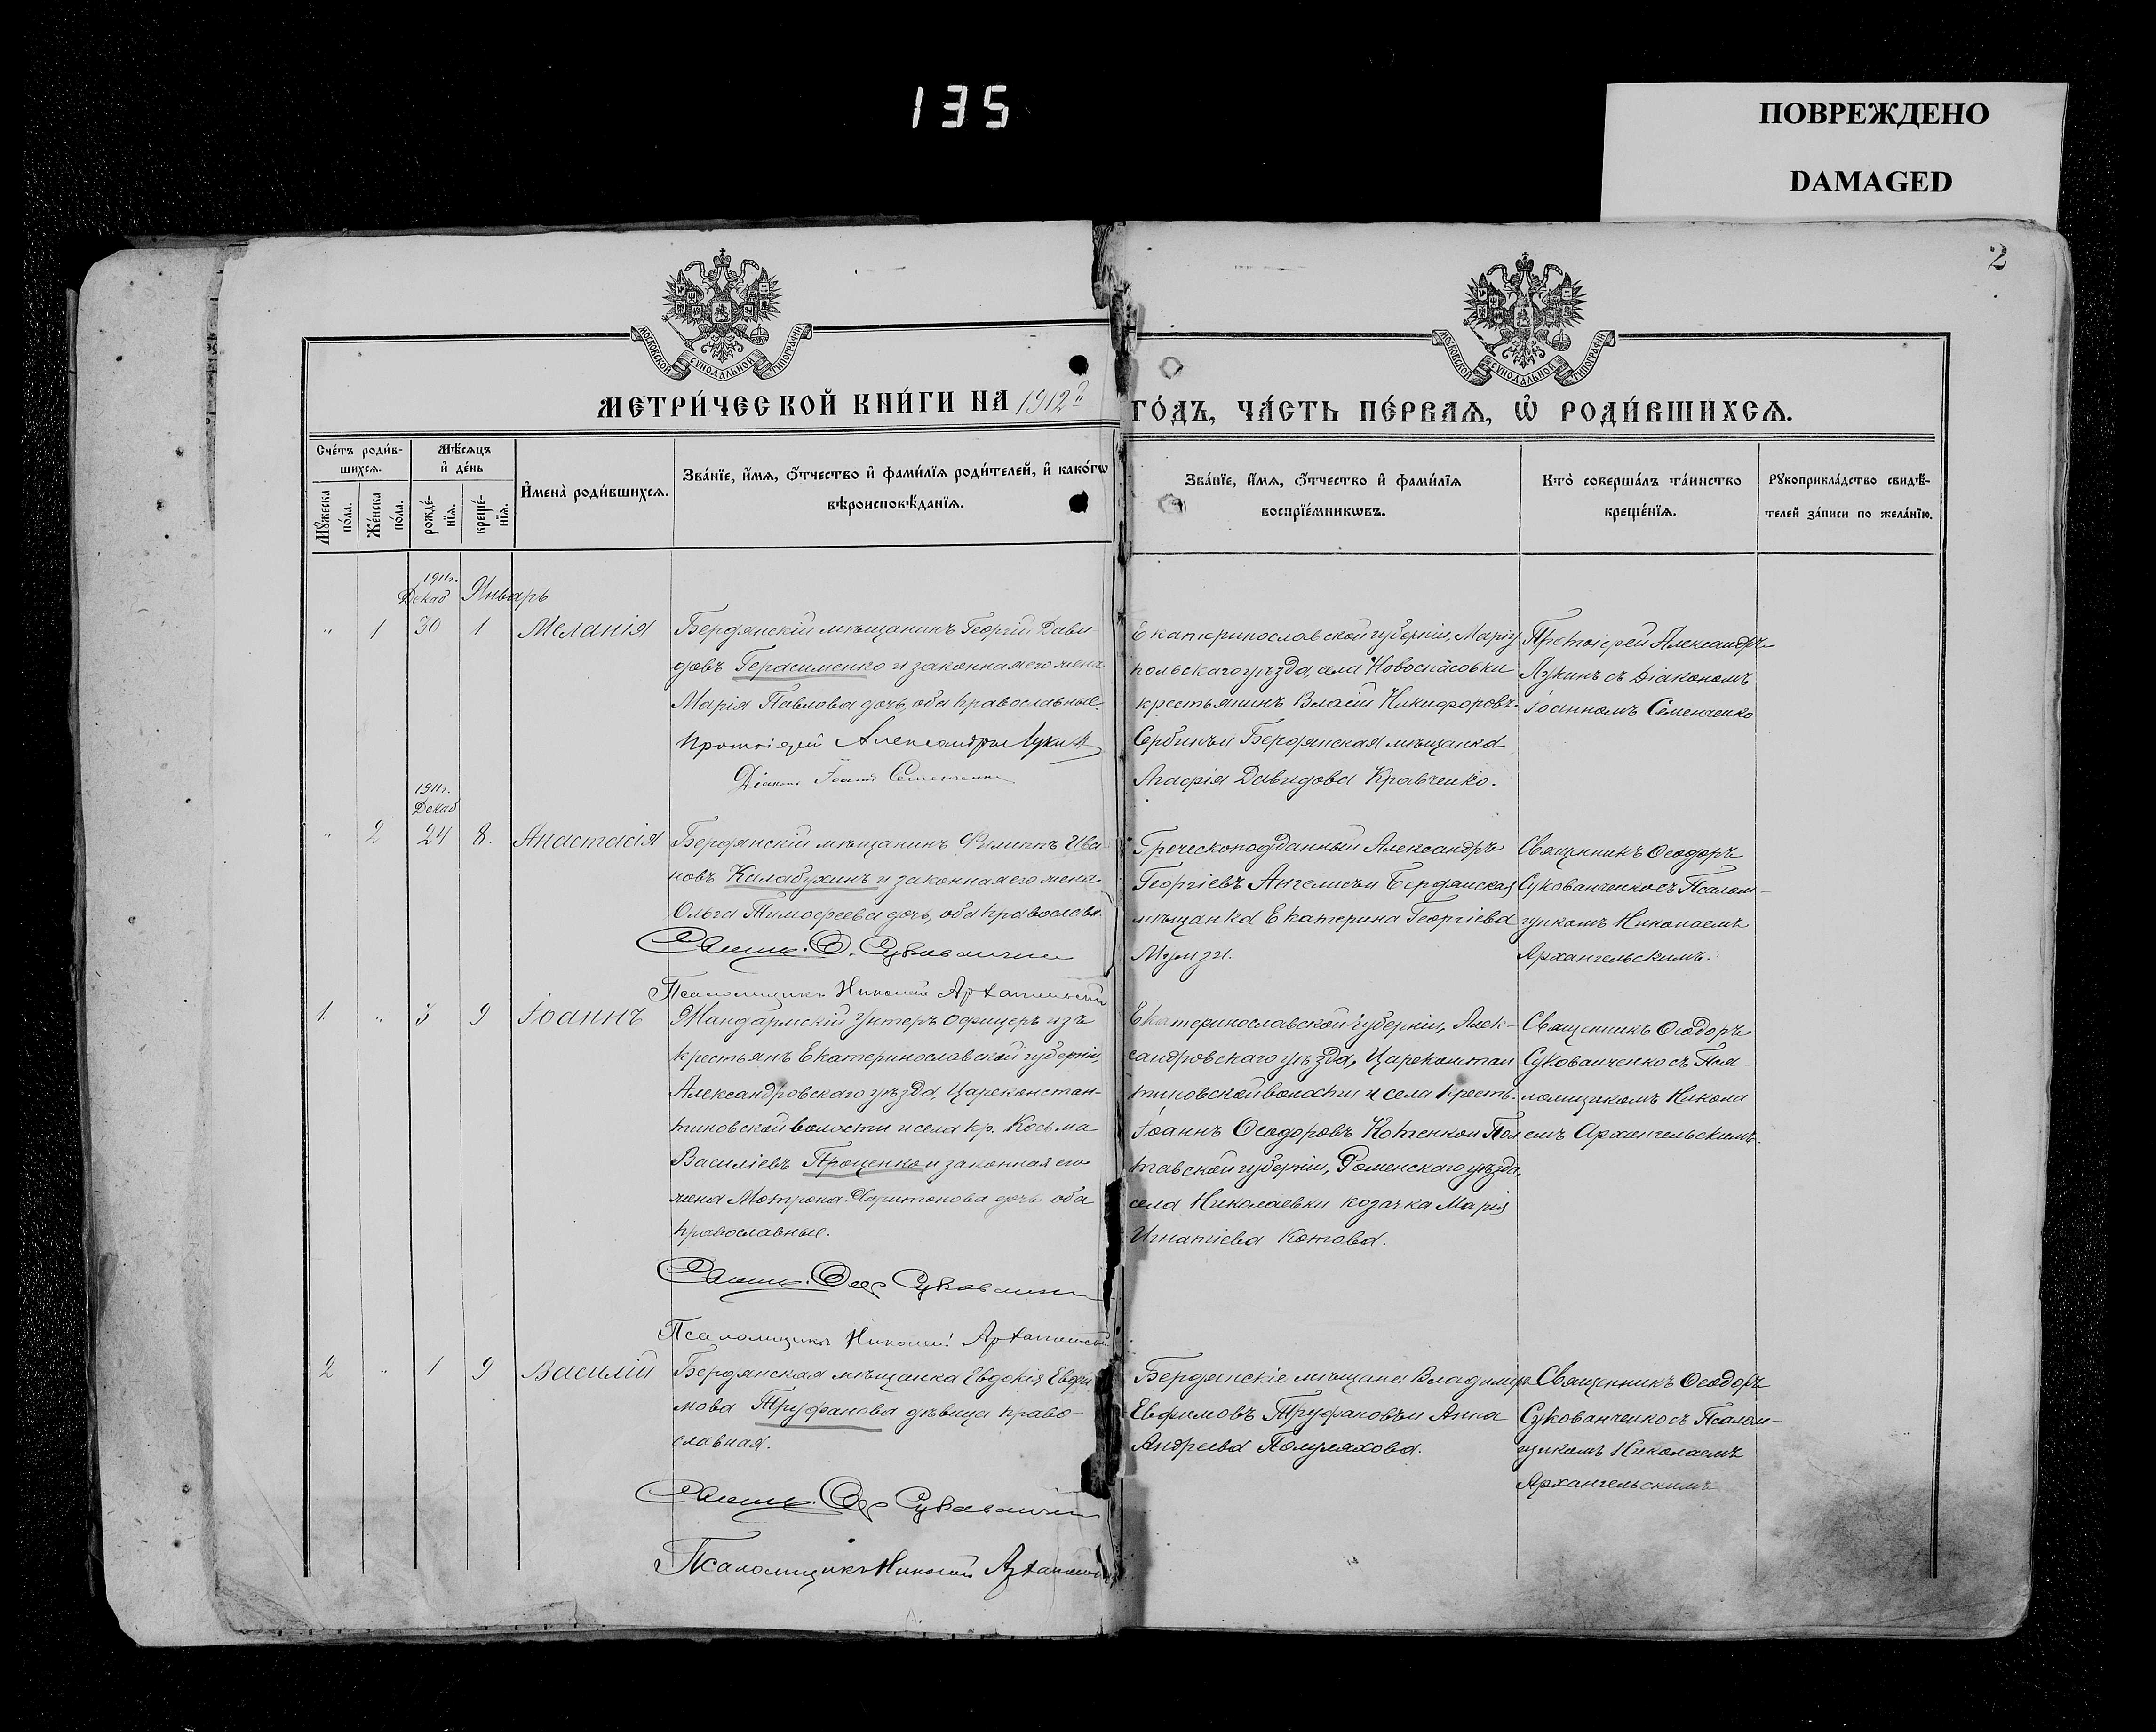 135
ПОВРЕЖДЕНО
DAMAGED
2
МОСКОВСКОЙ СѴНОДАЛЬНОЙ ТИПОГРАФІИ
МОСКОВСКОЙ СѴНОДАЛЬНОЙ ТИПОГРАФІИ
МЕТРИ́ЧЕСКОЙ КНИ́ГИ НА 1912й
ГО́ДЪ, ЧА́СТЬ ПЕ́РВАѦ, Ѿ РОДИ́ВШИХСѦ.
Сче́тъ роди́в-
шихсѧ.
Мѣ́сѧцъ
и҆ де́нь
Мꙋ́жеска
по́ла.
Же́нска
по́ла.
рожде́-
нїѧ.
креще́-
нїѧ.
И҆мена̀ роди́вшихсѧ.
Зва́нїе, и҆́мѧ, ѻ҆́тчество и҆ фами́лїѧ роди́телей, и҆ како́гѡ
вѣроисповѣ́данїѧ.
Зва́нїе, и҆́мѧ, ѻ҆́тчество и҆ фами́лїѧ
воспрїе́мникѡвъ.
Кто̀ соверша́лъ та́инство
креще́нїѧ.
Рꙋкоприкла́дство свидѣ́-
телей за́писи по жела́нїю.
1911г.
Декаб
Январь
" 1 30 1 Меланія
Бердянскій мѣщанинъ Георгій Дави-
довъ Герасименко и законная его жена
Марія Павлова дочь, оба православные.
Протоіерей Александръ Лукинъ
Діаконъ Іоаннъ Семенченко
Екатеринославской губерніи, Маріу
польскаго уѣзда, села Новоспасовки
крестьянинъ Власій Никифоровъ
Сербинъ и Бердянская мѣщанка
Агафія Давидова Кравченко.
Протоіерей Александръ
Лукинъ съ Діакономъ
Іоанномъ Семенченко
1911г.
Декаб
" 2 24 8. Анастасія
Бердянскій мѣщанинъ Филиппъ Ива
новъ Калабухинъ и законная его жена
Ольга Тимофеева дочь, оба православн.
Свящ. Ѳ. Сукованченко
Псаломщикъ Николай Архангельскій
Греческоподданный Александръ
Георгіевъ Ангелисъ и Бердянская
мѣщанка Екатерина Георгіева
Священникъ Ѳеодоръ
Сукованченко съ Псалом-
щикомъ Николаемъ
Архангельскимъ.
1. " 5 9 Іоаннъ
Жандармскій Унтеръ Офицеръ изъ
крестьянъ Екатеринославской губерніи,
Александровскаго уѣзда, Цареконстан-
тиновской волости и села кр. Косьма
Василіевъ Проценко и законная его
жена Мотрона Харитонова дочь оба
православные.
Свящ. Ѳеод Сукованченко
Псаломщикъ Николай Архангельскій
Екатеринославской губерніи, Алек-
сандровскаго уѣзда, Цареконстан
тиновской волости и села крест.
Іоаннъ Ѳеодоровъ Котенко и Пол
тавской губерніи, Роменскаго уѣзда,
села Николаевки козачка Марія
Игнатіева Котова.
Священникъ Ѳеодоръ
Сукованченко съ Пса-
ломщикомъ Никола
емъ Архангельскимъ.
2 " 1 9 Василій
Бердянская мѣщанка Евдокія Евфи
мова Труфанова дѣвица право-
славная.
Свящ. Ѳеод Сукованченко
Псаломщикъ Николай Архангельскій
Бердянскіе мѣщане: Владимиръ
Евфимовъ Труфановъ и Анна
Андреева Полуляхова.
Священникъ Ѳеодоръ
Сукованченко съ Псалом-
щикомъ Николаемъ
Архангельскимъ